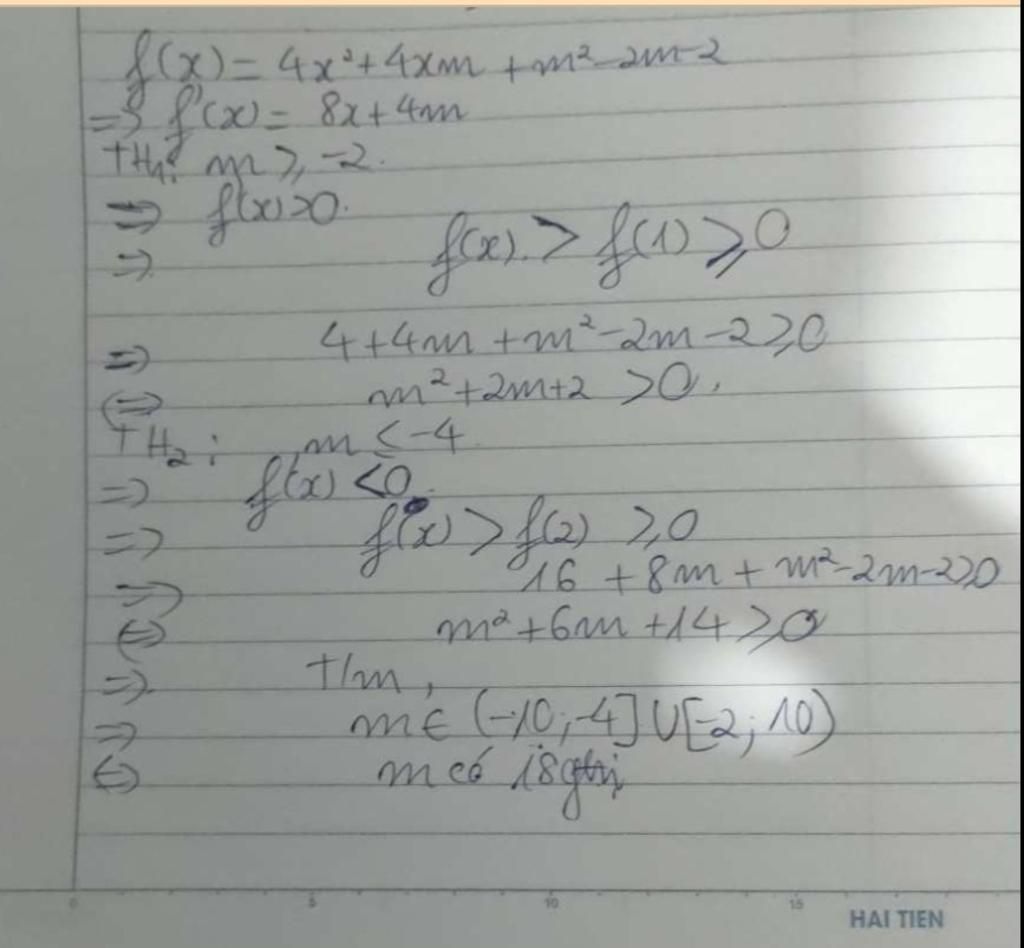 f(x) = 4x² + 4xm + m² - 2m - 2
=> f'(x) = 8x + 4m
TH₁: m ≥ -2.
=> f'(x) > 0.
=> f(x) > f(1) ≥ 0
=> 4 + 4m + m² - 2m - 2 ≥ 0
<=> m² + 2m + 2 > 0,
TH₂: m ≤ -4
=> f'(x) < 0
=> f(x) > f(2) ≥ 0
=> 16 + 8m + m² - 2m - 2 ≥ 0
<=> m² + 6m + 14 ≥ 0
=> T/m,
=> m ∈ (-10; -4] ∪ [-2; 10)
<=> m có 18 gtrị
0 5 10 15
HAI TIEN